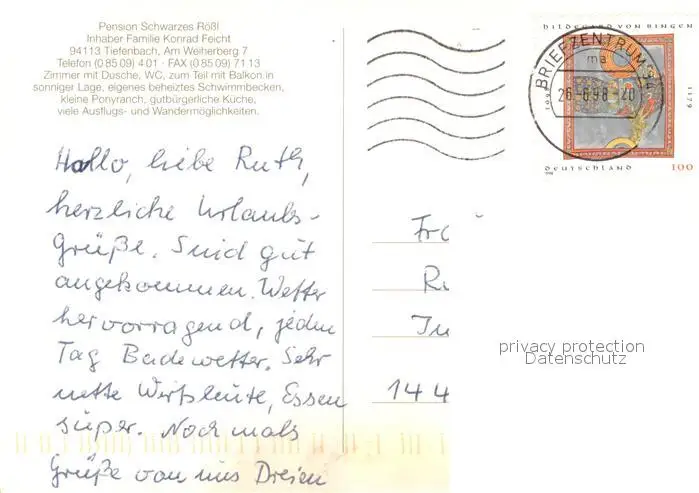 Pension Schwarzes Rößl
Inhaber Familie Konrad Feicht
94113 Tiefenbach, Am Weiherberg 7
Telefon (0 85 09) 4 01 · FAX (0 85 09) 71 13
Zimmer mit Dusche, WC, zum Teil mit Balkon in
sonniger Lage, eigenes beheiztes Schwimmbecken,
kleine Ponyranch, gutbürgerliche Küche,
viele Ausflugs- und Wandermöglichkeiten.
Hallo, liebe Ruth,
herzliche Urlaubs-
Grüße. Sind gut
angekommen. Wetter
hervorragend, jeden
Tag Badewetter. Sehr
nette Wirtsleute, Essen
super. Nochmals
Grüße von uns Dreien
HILDEGARD VON BINGEN
1098
1179
DEUTSCHLAND 100
1998
BRIEFZENTRUM 94
ma
26.-6.98-20
Fr
R
In
144
privacy protection
Datenschutz